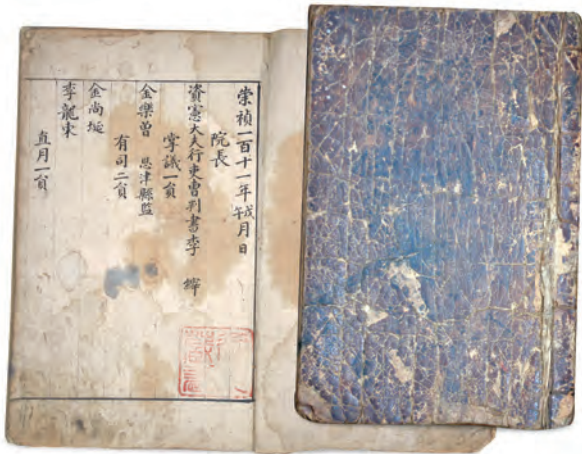 崇禎一百十一年戊午月日
院長
資憲大夫行吏曹判書李 縡
掌議一貟
金樂曽 恩津縣監
有司二貟
金尚埏
李龍東
直月一貟